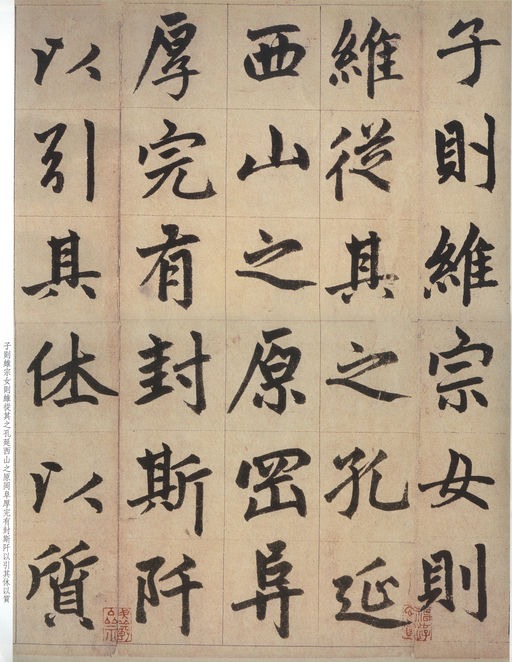 子則維宗女則
維從其之孔延
西山之原罡阜
厚完有封斯阡
以引其休以質
子则維宗女则維從其之孔延西山之原罡阜厚完有封斯阡以引其休以質